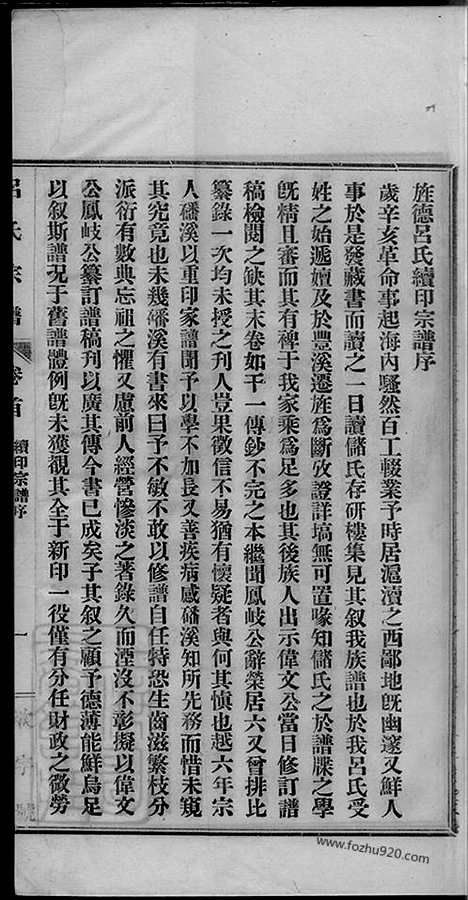 旌德呂氏續印宗譜序
歲辛亥革命事起海內騷然百工輟業予時居滬瀆之西鄙地旣幽邃又鮮人
事於是發藏書而讀之一日讀儲氏存研樓集見其叙我族譜也於我呂氏受
姓之始遞嬗及於豐溪遷旌爲斷攷證詳塙無可置喙知儲氏之於譜牒之學
旣精且審而其有裨于我家乘爲足多也其後族人出示偉文公當日修訂譜
稿檢閱之缺其末卷如干一傳鈔不完之本繼聞鳳岐公辭榮居六又曾排比
纂錄一次均未授之刊人豈果徵信不易猶有懷疑者與何其愼也越六年宗
人磻溪以重印家譜聞予以學不加長又善疾病感磻溪知所先務而惜未窺
其究竟也未幾磻溪有書來曰予不敏不敢以修譜自任特恐生齒滋繁枝分
派衍有數典忘祖之懼又慮前人經營慘淡之著錄久而湮沒不彰擬以偉文
公鳳岐公纂訂譜稿刊以廣其傳今書已成矣子其叙之顧予德薄能鮮烏足
以叙斯譜况于舊譜體例旣未獲觀其全于新印一役僅有分任財政之微勞
呂氏宗譜 卷首 續印宗譜序 一
www.fozhu920.com